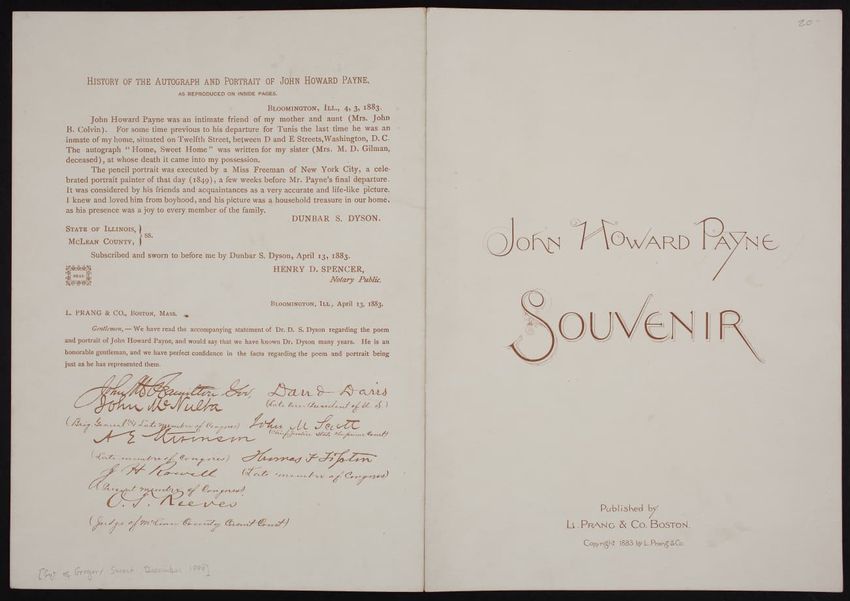 HISTORY OF THE AUTOGRAPH AND PORTRAIT OF JOHN HOWARD PAYNE.
AS REPRODUCED ON INSIDE PAGES.
BLOOMINGTON, ILL., 4, 3, 1883.
John Howard Payne was an intimate friend of my mother and aunt (Mrs. John
B. Colvin). For some time previous to his departure for Tunis the last time he was an
inmate of my home, situated on Twelfth Street, between D and E Streets, Washington, D. C.
The autograph "Home, Sweet Home" was written for my sister (Mrs. M. D. Gilman,
deceased), at whose death it came into my possession.
The pencil portrait was executed by a Miss Freeman of New York City, a cele-
brated portrait painter of that day (1849), a few weeks before Mr. Payne's final departure.
It was considered by his friends and acquaintances as a very accurate and life-like picture.
I knew and loved him from boyhood, and his picture was a household treasure in our home,
as his presence was a joy to every member of the family.
DUNBAR S. DYSON.
STATE OF ILLINOIS, }
MCLEAN COUNTY, } SS.
Subscribed and sworn to before me by Dunbar S. Dyson, April 13, 1883.
SEAL
HENRY D. SPENCER,
Notary Public.
BLOOMINGTON, ILL, April 13, 1883.
L. PRANG & CO., BOSTON, MASS.
Gentlemen,— We have read the accompanying statement of Dr. D. S. Dyson regarding the poem
and portrait of John Howard Payne, and would say that we have known Dr. Dyson many years. He is an
honorable gentleman, and we have perfect confidence in the facts regarding the poem and portrait being
just as he has represented them.
John M Hamilton Gov. David Davis
John McNulta (Late Vice-President of U.S.)
(Brig General & Late Member of Congress) John M Scott
(Chief Justice State Supreme Court)
A E Stevenson
(Late member of Congress) Thomas F Tipton
J H Rowell (Late member of Congress)
(Present member of Congress)
O. T. Reeves
(Judge of McLean County Circuit Court)
December
20-
JOHN HOWARD PAYNE
SOUVENIR
Published by
L. PRANG & CO. BOSTON.
Copyright 1883 by L. Prang & Co.